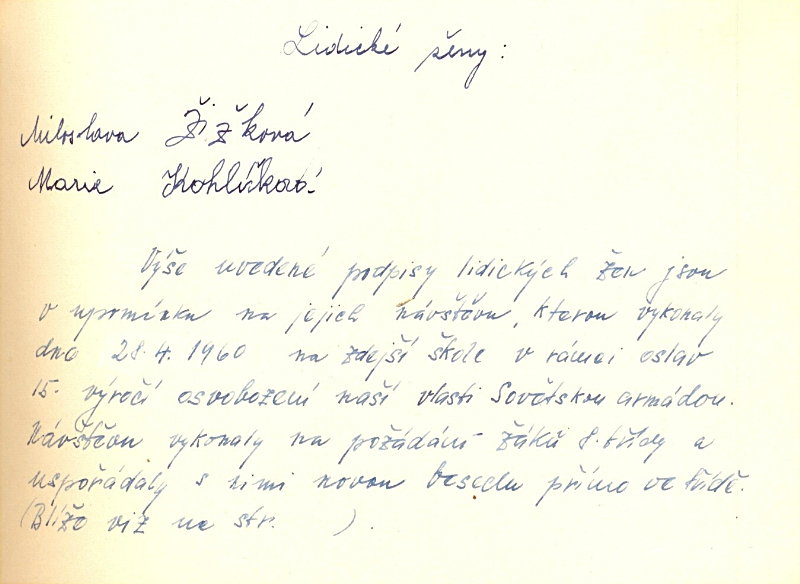 Lidické ženy:
Miloslava Žižková
Marie Kohlíčková
Výše uvedené podpisy lidických žen jsou
v upomínku na jejich návštěvu, kterou vykonaly
dne 28.4.1960 na zdejší škole v rámci oslav
15. výročí osvobození naší vlasti Sovětskou armádou.
Návštěvu vykonaly na požádání žáků 8. třídy a
uspořádaly s nimi novou besedu přímo ve třídě.
(Blíže viz na str. ).